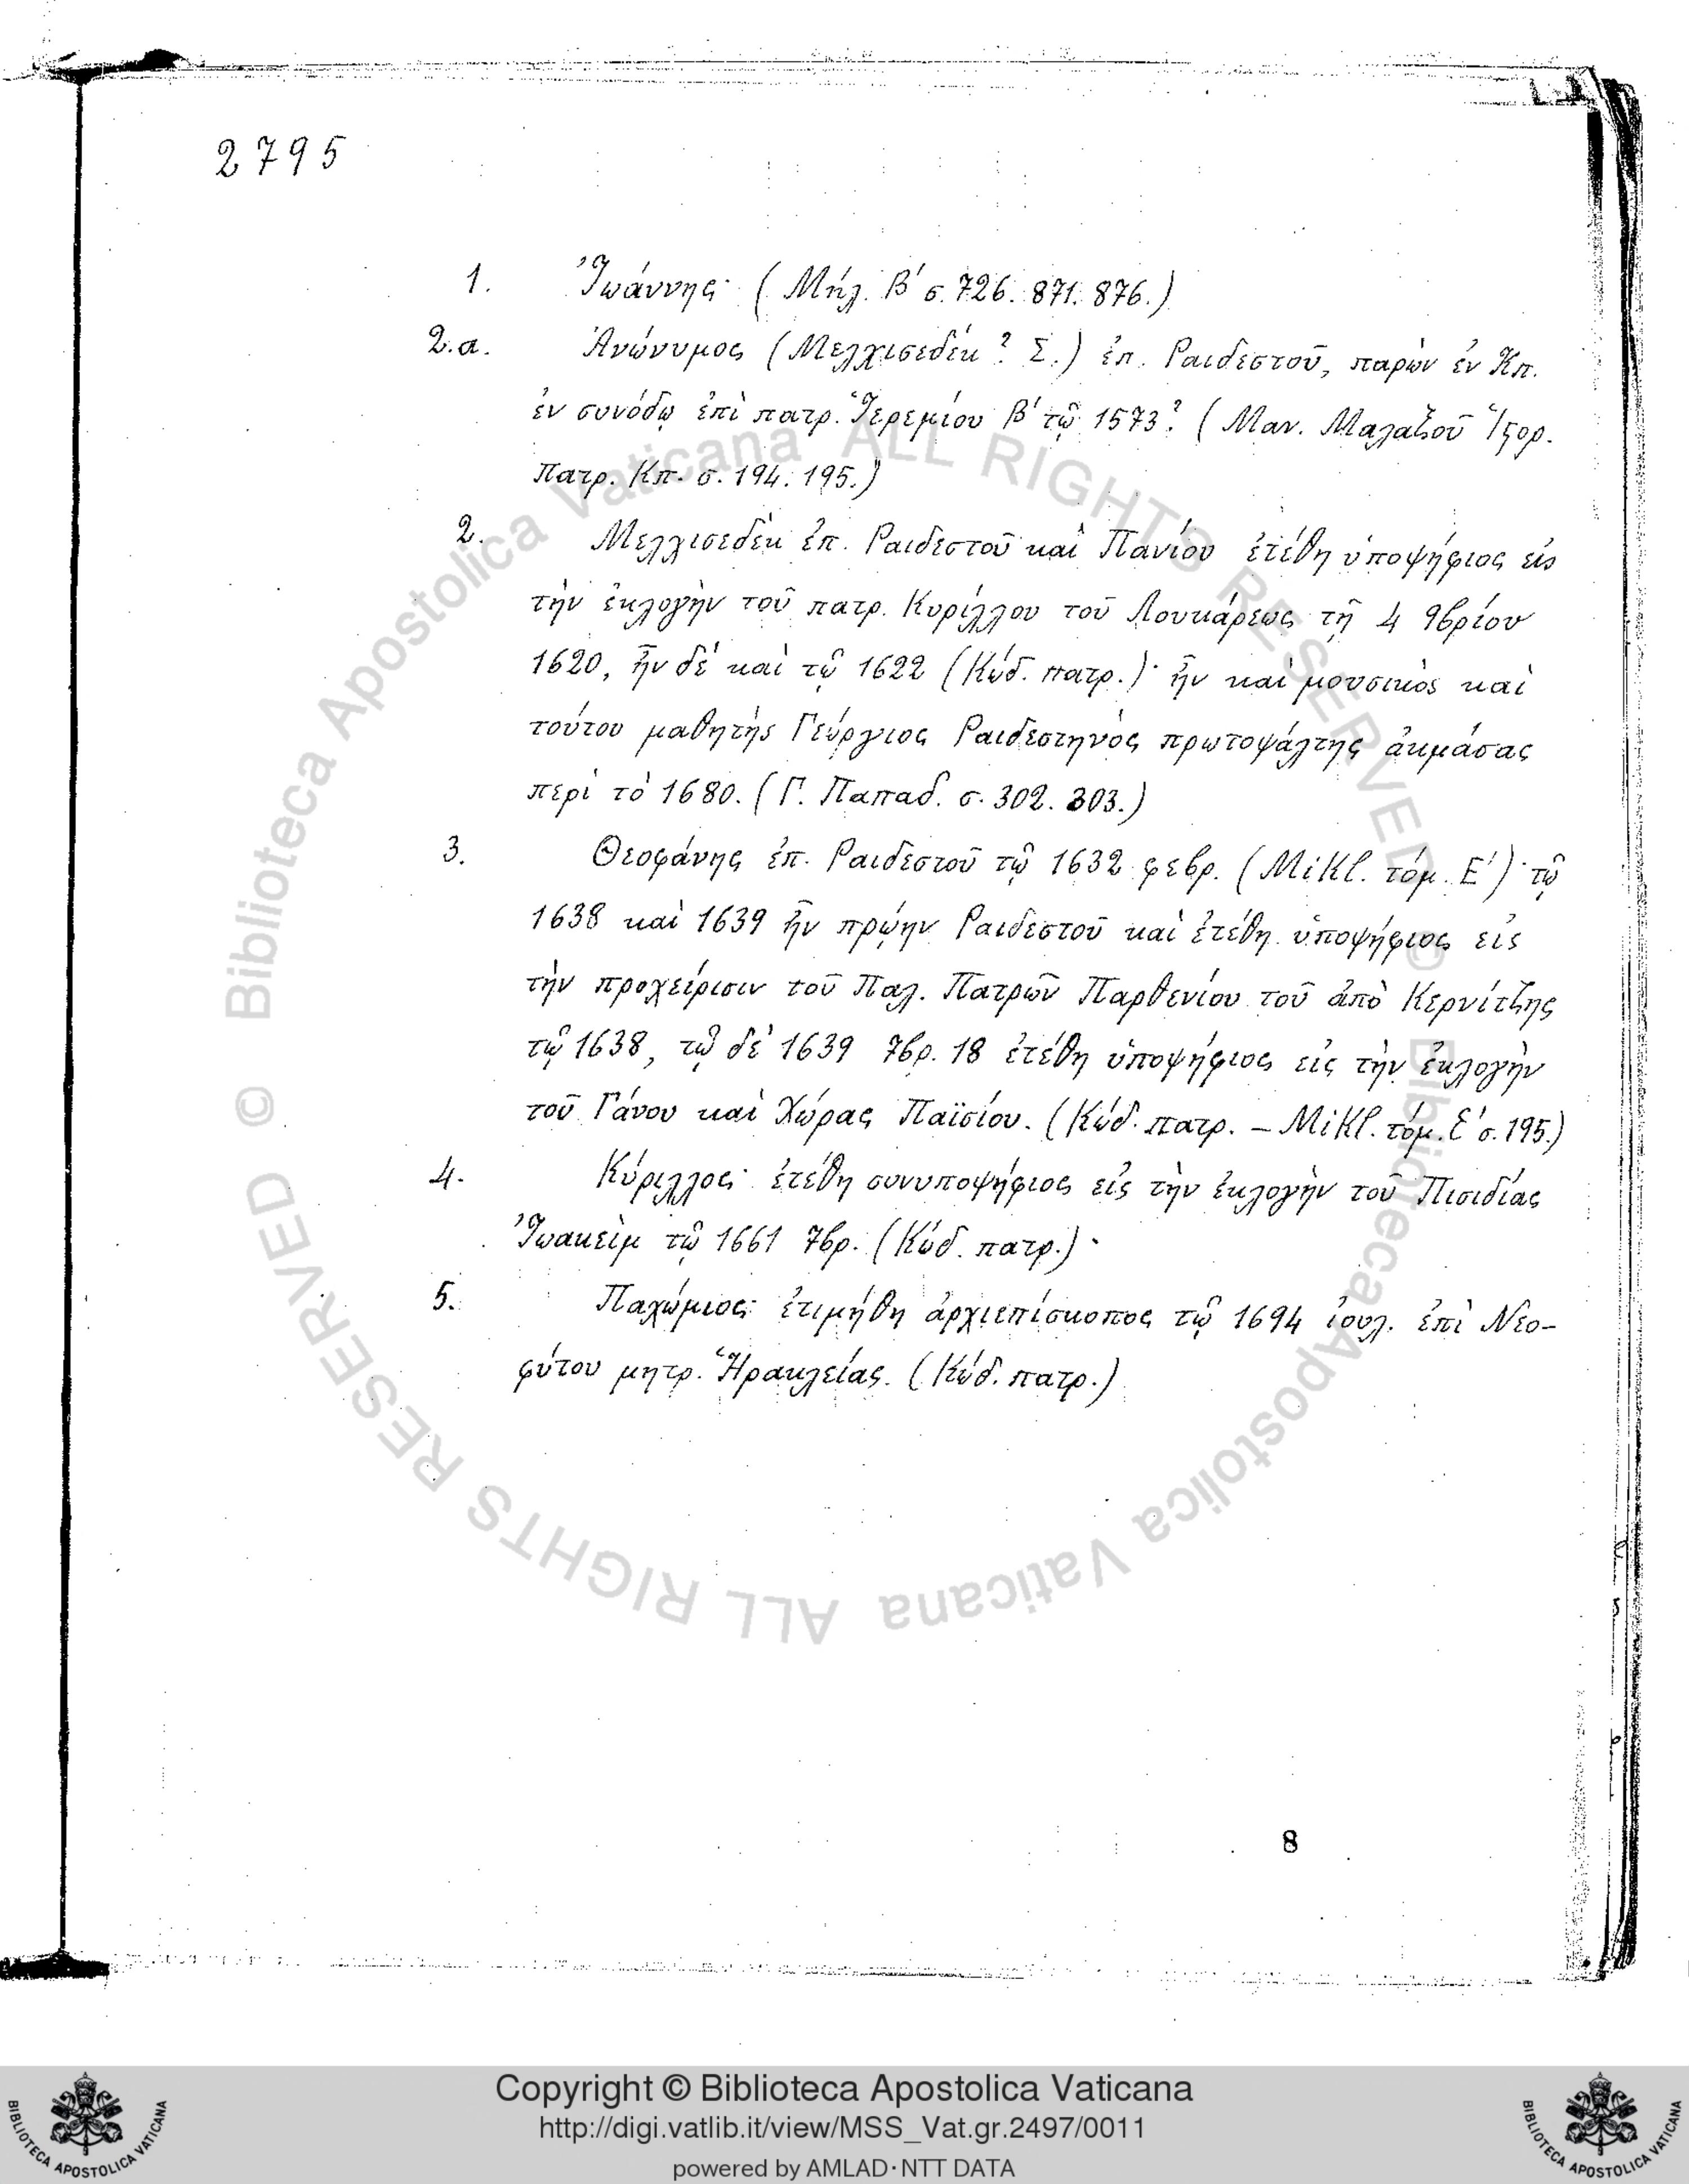 2795
1. Ἰωάννης· (Μήλ. Β΄ σ. 726. 871. 876.)
2.α. Ἀνώνυμος (Μελχισεδέκ? Σ.) ἐπ. Ραιδεστοῦ, παρὼν ἐν Κπ.
ἐν συνόδῳ ἐπὶ πατρ. Ἱερεμίου Β΄ τῷ 1573? (Μαν. Μαλαξοῦ Ἱστορ.
Πατρ. Κπ. σ. 194. 195.)
2. Μελχισεδὲκ ἐπ. Ραιδεστοῦ καὶ Πανίου ἐτέθη ὑποψήφιος εἰς
τὴν ἐκλογὴν τοῦ πατρ. Κυρίλλου τοῦ Λουκάρεως τῇ 4 9βρίου
1620, ἦν δὲ καὶ τῷ 1622 (Κώδ. πατρ.)· ἦν καὶ μουσικὸς καὶ
τούτου μαθητὴς Γεώργιος Ραιδεστηνὸς πρωτοψάλτης ἀκμάσας
περὶ τὸ 1680. (Γ. Παπαδ. σ. 302. 303.)
3. Θεοφάνης ἐπ. Ραιδεστοῦ τῷ 1632 φεβρ. (Mikl. τόμ. Ε΄)· τῷ
1638 καὶ 1639 ἦν πρῴην Ραιδεστοῦ καὶ ἐτέθη ὑποψήφιος εἰς
τὴν προχείρισιν τοῦ Παλ. Πατρῶν Παρθενίου τοῦ ἀπὸ Κερνίτζης
τῷ 1638, τῷ δὲ 1639 7βρ. 18 ἐτέθη ὑποψήφιος εἰς τὴν ἐκλογὴν
τοῦ Γάνου καὶ Χώρας Παϊσίου. (Κώδ. πατρ. – Mikl. τόμ. Ε΄ σ. 195.)
4. Κύριλλος· ἐτέθη συνυποψήφιος εἰς τὴν ἐκλογὴν τοῦ Πισιδίας
Ἰωακεὶμ τῷ 1661 7βρ. (Κώδ. πατρ.)·
5. Παχώμιος· ἐτιμήθη ἀρχιεπίσκοπος τῷ 1694 ἰουλ. ἐπὶ Νεο-
φύτου μητρ. Ἡρακλείας. (Κώδ. πατρ.)
8
© Biblioteca Apostolica Vaticana ALL RIGHTS RESERVED © Biblioteca Apostolica Vaticana ALL RIGHTS RESERVED
Copyright © Biblioteca Apostolica Vaticana
http://digi.vatlib.it/view/MSS_Vat.gr.2497/0011
powered by AMLAD·NTT DATA
BIBLIOTECA APOSTOLICA VATICANA
BIBLIOTECA APOSTOLICA VATICANA